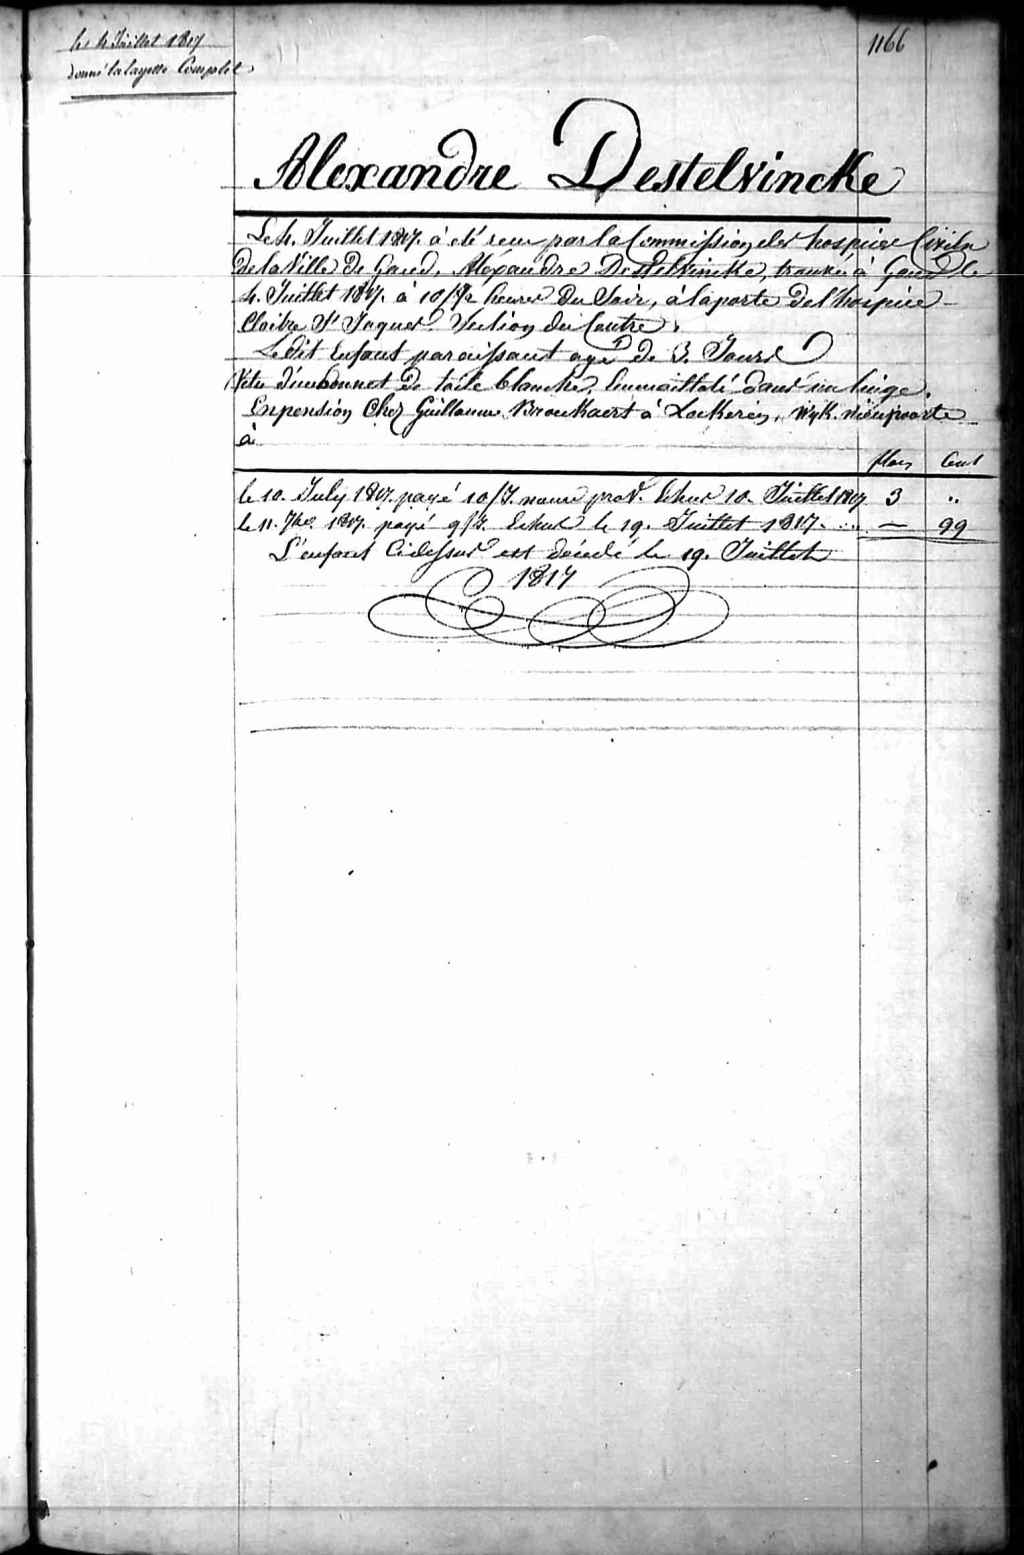 le 4 Juillet 1817
donné la layette Complet
1166
Alexandre Destelvincke
Le 4. Juillet 1817. à eté recu par la Commission des hospices Civils
de la Ville de Gand, Alexandre Destelvincke, trouvé à Gand le
4. Juillet 1817. à 10 1/2 heures du Soir, à la porte de l'hospice
Cloitre St Jaques Section du Centre.
Ledit Enfant paraissant agé de 3. Jours
Vetu d'un bonnet de toile blanche, Emmailloté dans un linge.
En pension Chez Guillaume Brouckaert à Lockeren, Wyk. nieupoorte
à
flors Cent
le 10. July 1817. payé 10/7. nourr prov. Echus 10. Juillet 1817 3 "
le 11. 7bre 1817. payé 9/7. Echus le 19. Juillet 1817. — 99
L'enfant Cidessus est décédé le 19. Juillet
1817